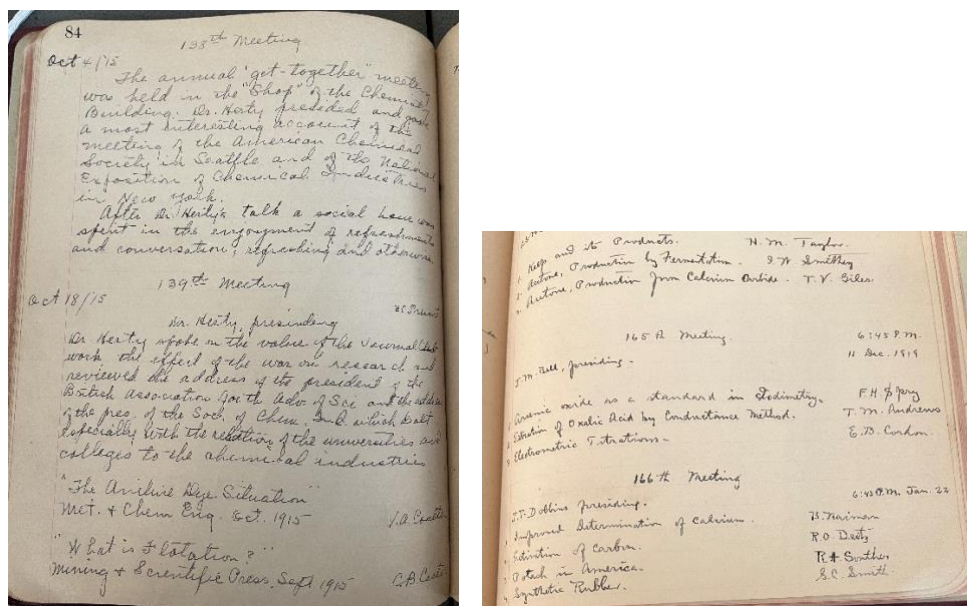 84
138th Meeting
Oct 4/15
The annual "get-together" meeting
was held in the "Shop" of the Chemistry
Building. Dr. Herty presided and gave
a most interesting account of the
meeting of the American Chemical
Society in Seattle and of the National
Exposition of Chemical Industries
in New York.
After Dr. Herty's talk a social hour was
spent in the enjoyment of refreshments
and conversation, refreshing and otherwise.
139th Meeting
Oct 18/15
Dr. Herty, presiding
Dr. Herty spoke on the value of the Journal Club
work the effect of the war on research and
reviewed the address of the president of the
British Association for the Adv. of Sci and the address
of the pres. of the Soc. of Chem. Ind. which dealt
especially with the relation of the universities and
colleges to the chemical industries
"The Aniline Dye Situation"
Met. & Chem Eng. Oct. 1915
"What is Flotation?"
Mining & Scientific Press, Sept 1915
Kelp and its Products. H. M. Taylor.
Acetone, Production by Fermentation. I W Smithey
Acetone, Production from Calcium Carbide. T. V. Giles.
165th Meeting 6:45 P.M.
11 Dec. 1919
J. M. Bell, presiding.
Arsenic oxide as a standard in Iodimetry. F. H.
Titration of Oxalic Acid by Conductance Method. T. M. Andrews
Electrometric Titrations. E. B. Cordon.
166th Meeting
P.M. Jan. 22
J. T. Dobbins presiding.
Improved Determination of Calcium. B. Naiman
Activation of Carbon. R. O. Deitz
Potash in America. R A Souther
Synthetic Rubber. S. C. Smith